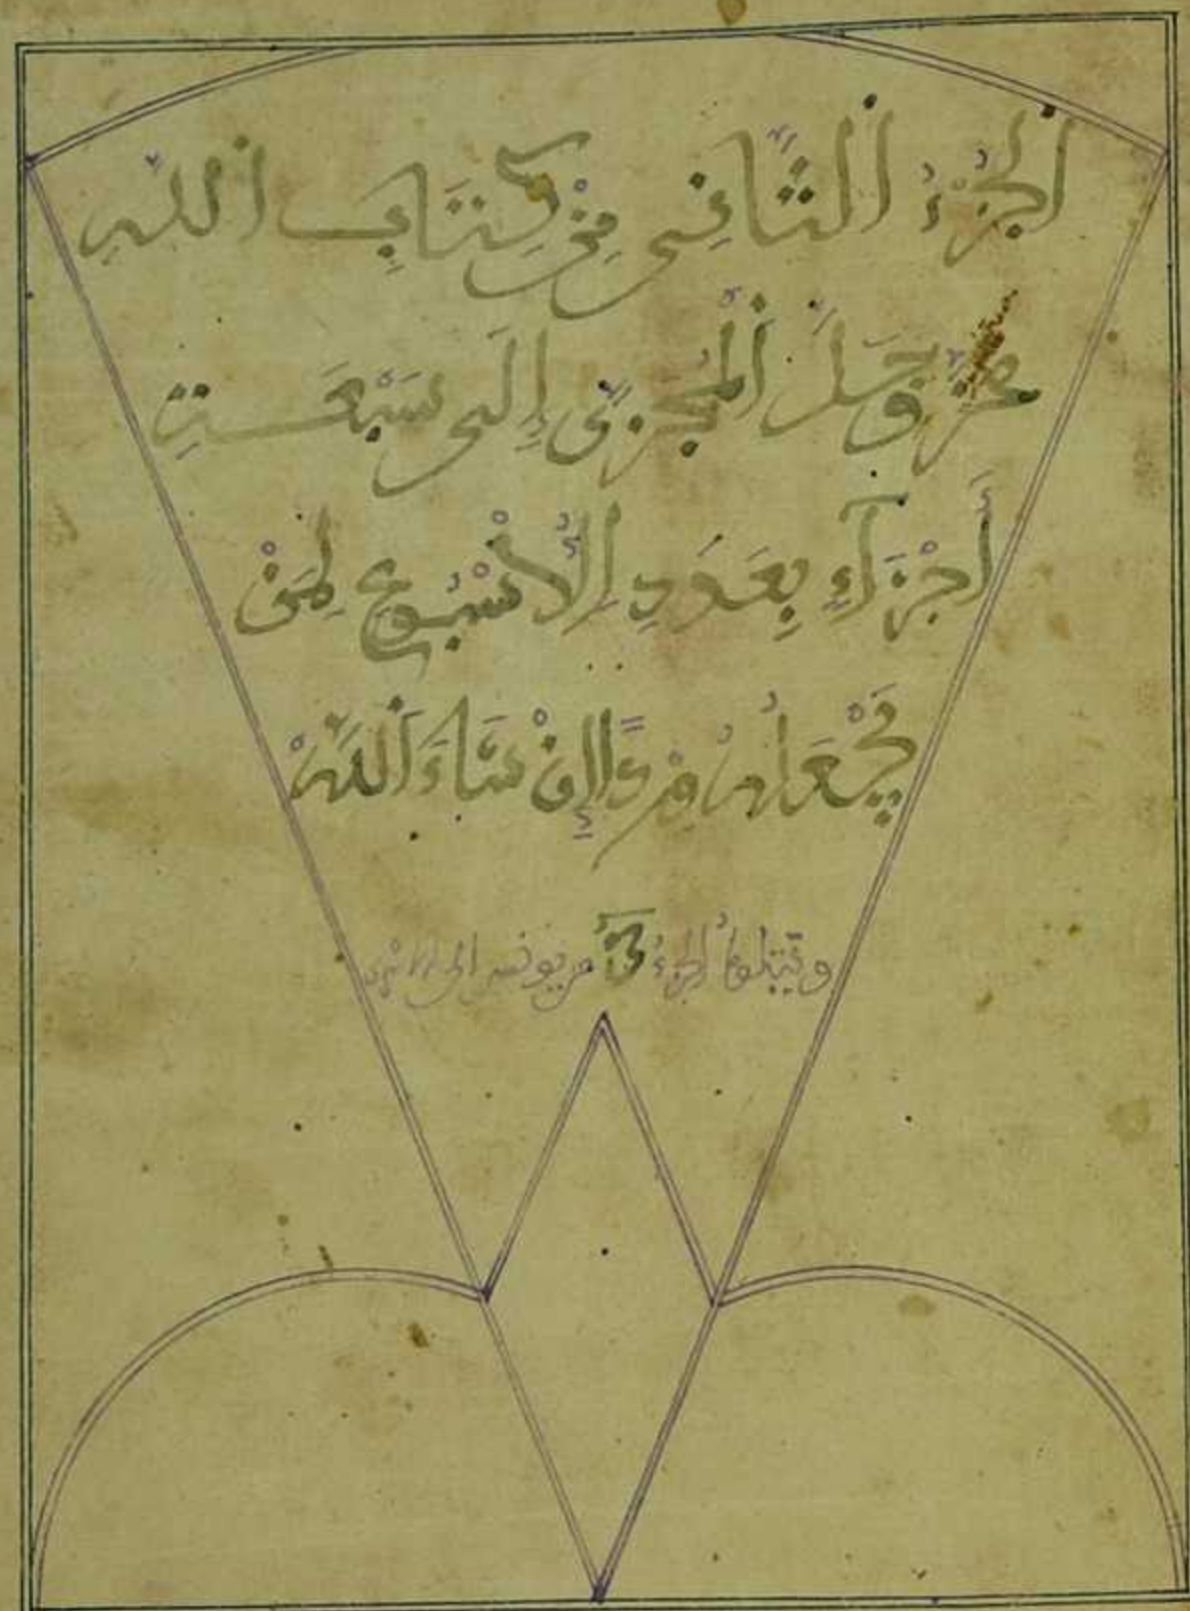 اَلْجُزْءُ اُلثَّانِى مِنْ كِتَابِ اِللَّهِ
عَزَّ وَجَلَّ اَلْمُجَزَّى إِلَى سَبْعَتِ
أَجْزَآءِ بِعَدَدِ اِلْأُسْبُوعِ لِمَنْ
يَجْعَلُهُ وِرْداً إِنْ شَاءَ اَللَّهُ
ويتلوه الجزء من يونس الى